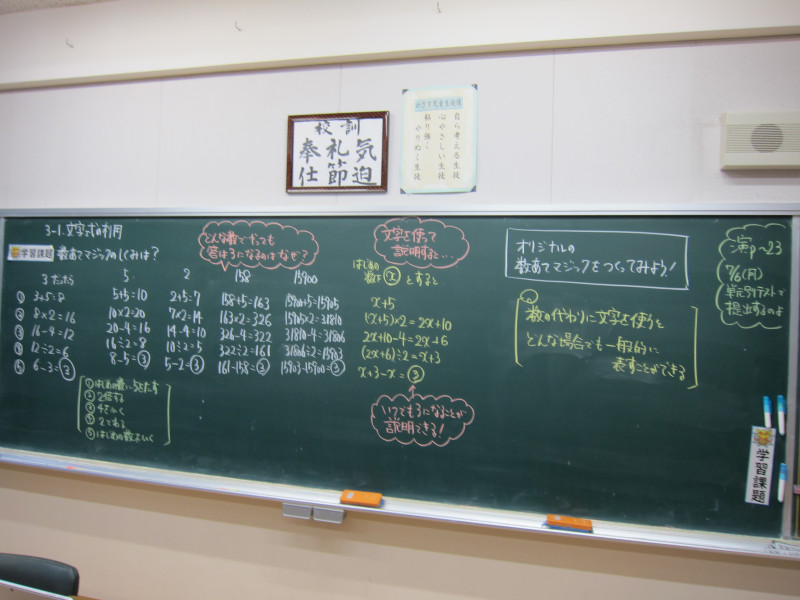 校訓
気迫
礼節
奉仕
めざす児童生徒像
自ら考える生徒
心やさしい生徒
粘り強く
やりぬく生徒
3-1. 文字式の利用
学習課題
数あてマジックのしくみは？
3だったら
① 3+5=8
② 8×2=16
③ 16-4=12
④ 12÷2=6
⑤ 6-3=③
5
5+5=10
10×2=20
20-4=16
16÷2=8
8-5=③
2
2+5=7
7×2=14
14-4=10
10÷2=5
5-2=③
158
158+5=163
163×2=326
326-4=322
322÷2=161
161-158=③
15900
15900+5=15905
15905×2=31810
31810-4=31806
31806÷2=15903
15903-15900=③
① はじめの数に5をたす
② 2倍する
③ 4をひく
④ 2でわる
⑤ はじめの数をひく
どんな数でやっても
答は3になるのはなぜ？
文字を使って
説明すると…
はじめの
数を ⓧ とすると
x+5
(x+5)×2=2x+10
2x+10-4=2x+6
(2x+6)÷2=x+3
x+3-x=③
いつでも3になることが
説明できる！
オリジナルの
数あてマジックをつくってみよう！
数の代わりに文字を使うと
どんな場合でも一般的に
表すことができる
演P~23
7/6(月)
単元別テストで
提出するのよ
学習課題